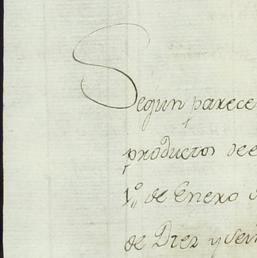 Segun parece
productos de
1º de Enero
de Diez y sei